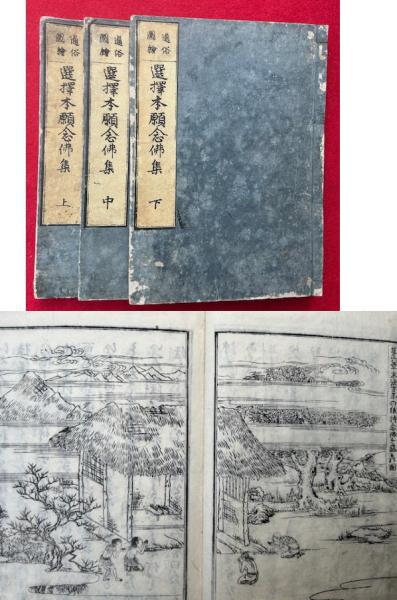 通俗
圖繪
選擇本願念佛集
上
通俗
圖繪
選擇本願念佛集
中
通俗
圖繪
選擇本願念佛集
下